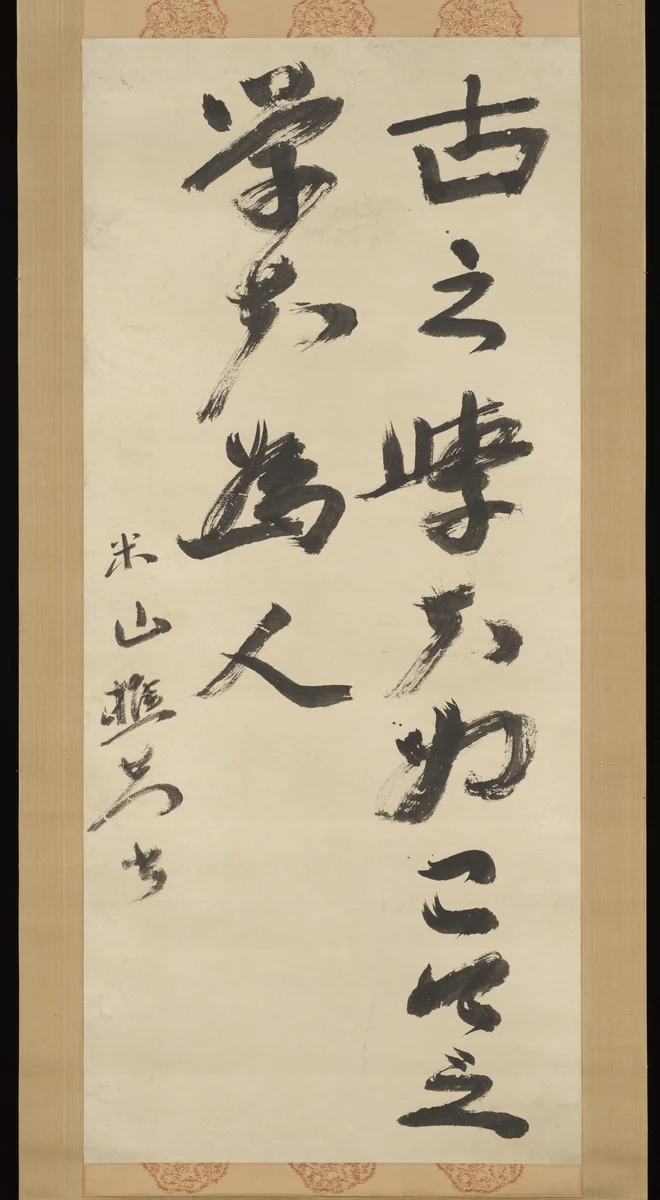 古之學者為己今之
學者為人
米山樵者書